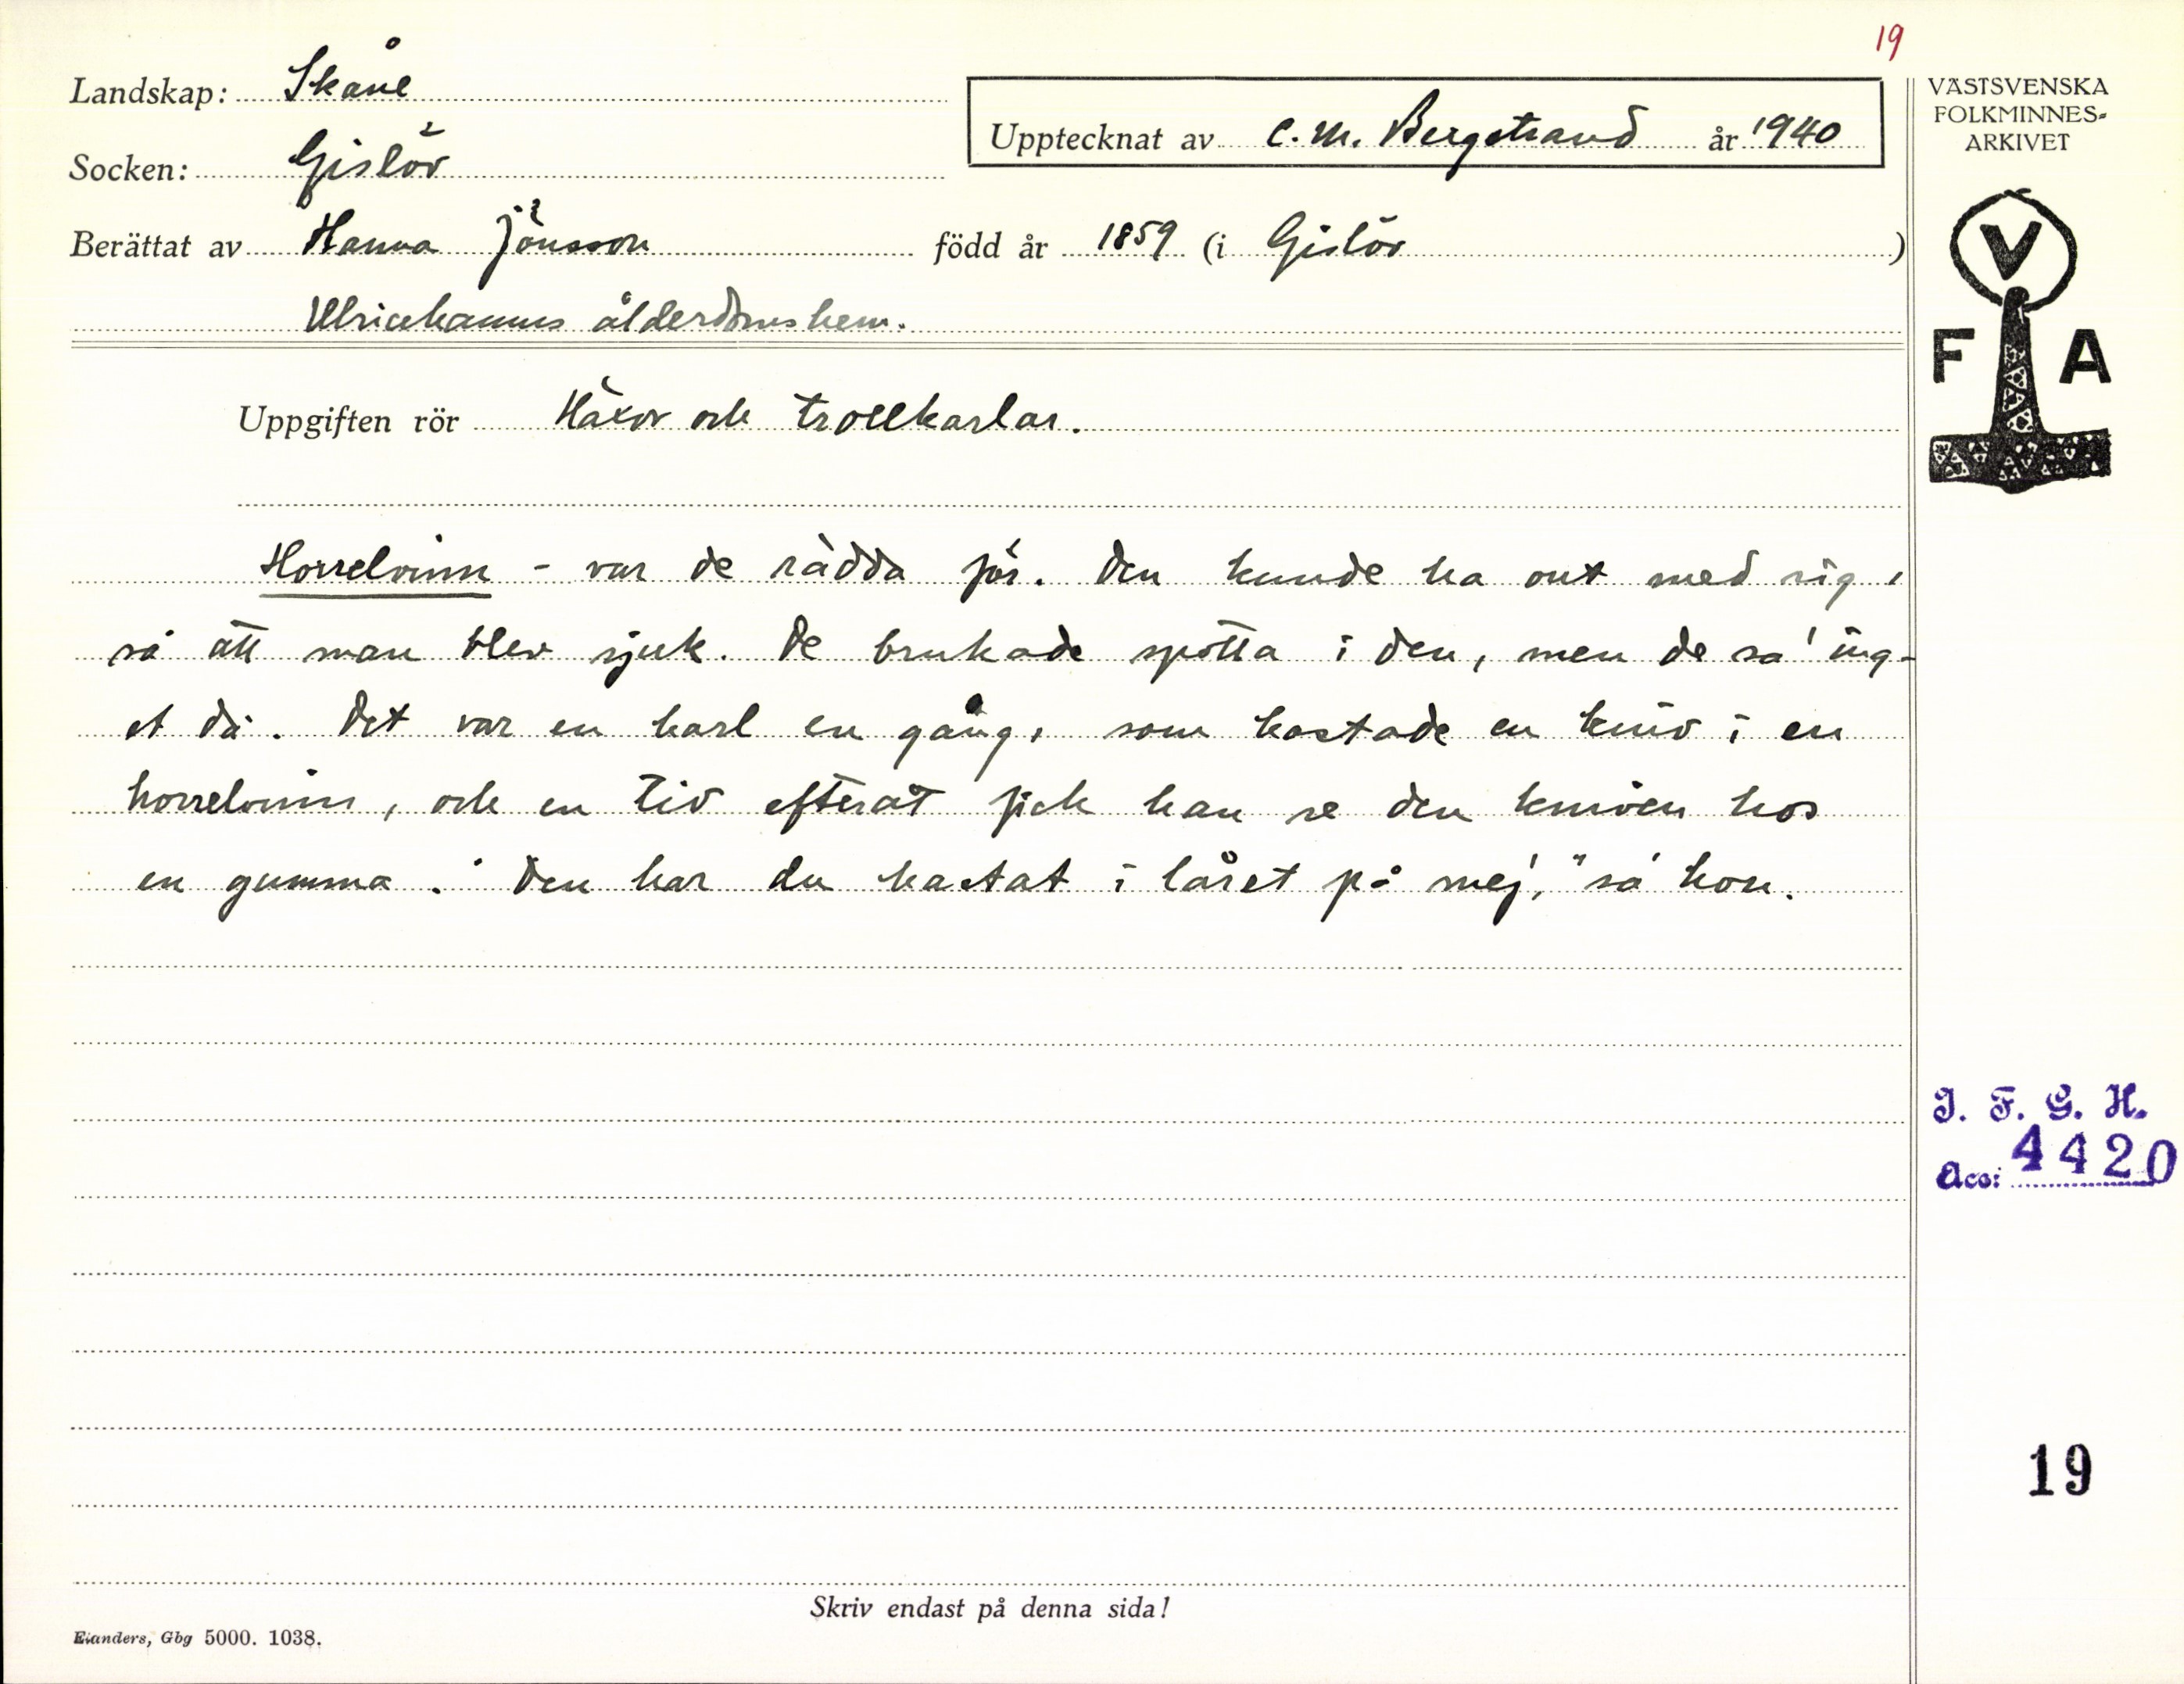 19
Landskap: Skåne
Socken: Gislöv
Upptecknat av C. M. Bergstrand år 1940
VÄSTSVENSKA
FOLKMINNES-
ARKIVET
Berättat av Hanna Jönsson född år 1859 (i Gislöv)
Ulricehamns ålderdomshem.
V
F A
Uppgiften rör Häxor och trollkarlar.
Horrelvinn - var de rädda för. Den kunde ha ont med sig,
så att man blev sjuk. De brukade spotta i den, men de sa' ing-
et då. Det var en karl en gång, som kastade en kniv i en
horrelvinn, och en tid efteråt fick han se den kniven hos
en gumma. "Den har du kastat i låret på mej," sa' hon.
I. F. G. H.
Acc: 4420
19
Skriv endast på denna sida!
Elanders, Gbg 5000. 1038.